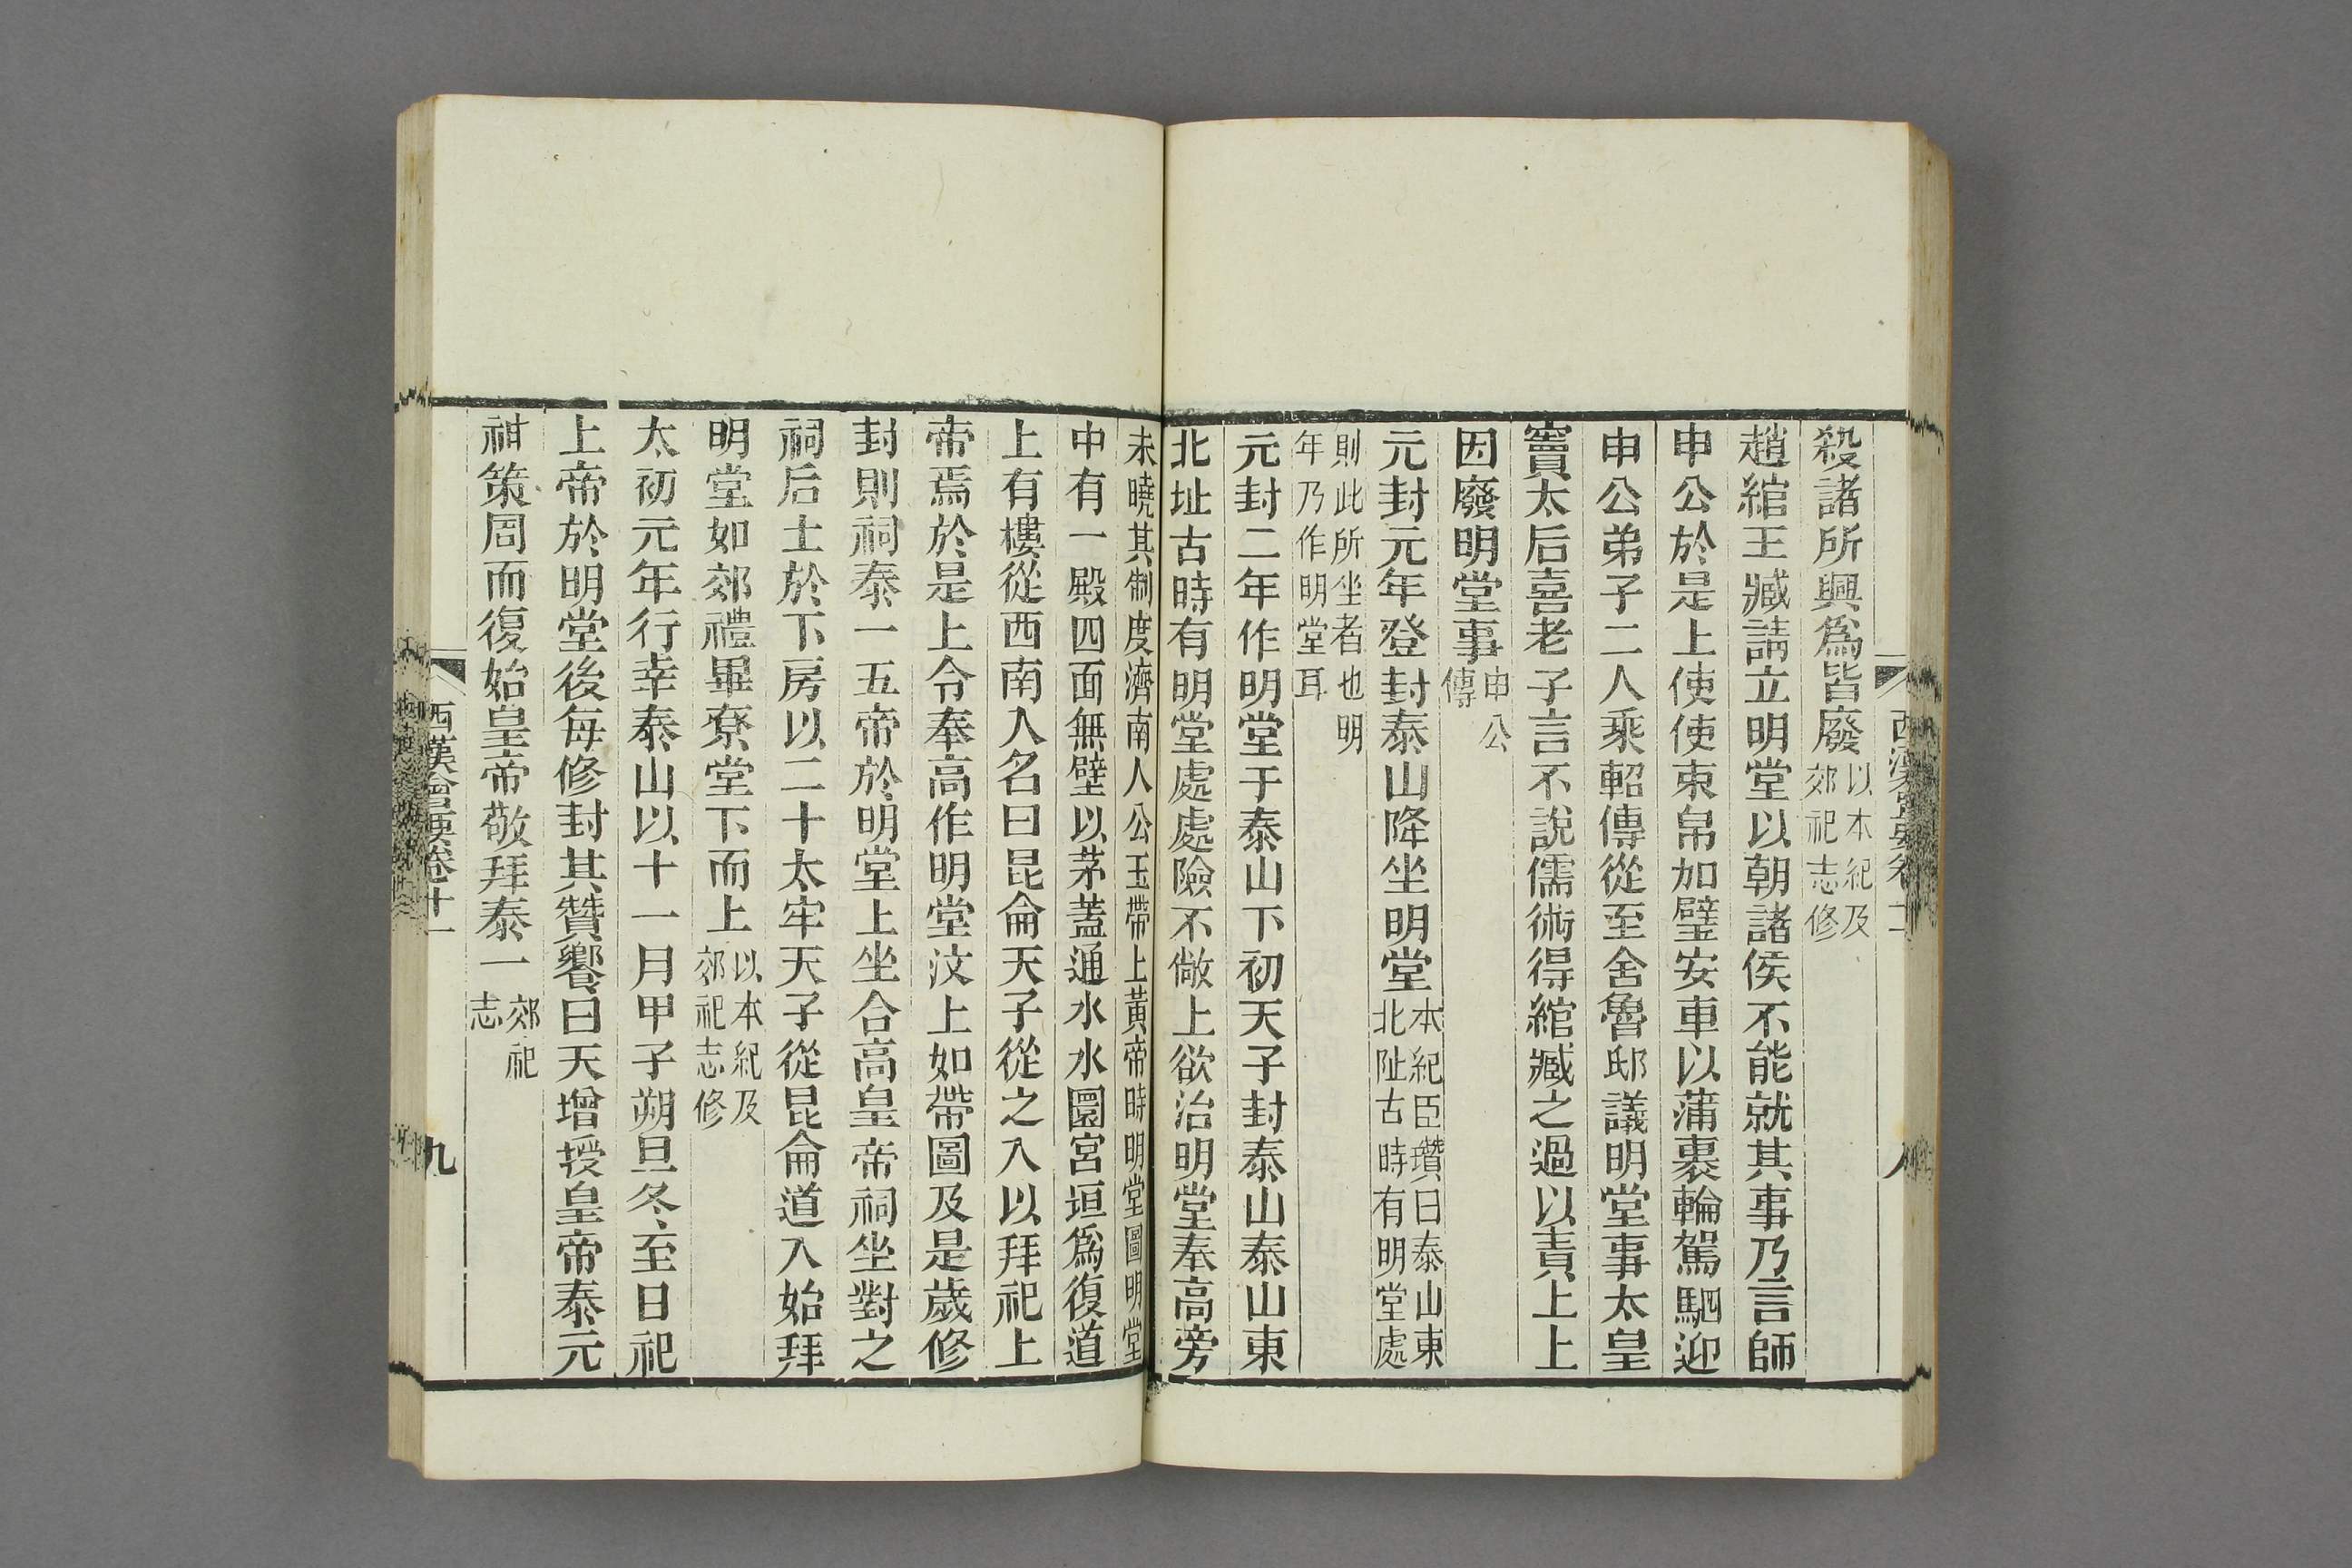 殺諸所興爲皆廢以本紀及郊祀志修
趙綰王臧請立明堂以朝諸侯不能就其事乃言師
申公於是上使使束帛加璧安車以蒲裹輪駕駟迎
申公弟子二人乘軺傳從至舍魯邸議明堂事太皇
竇太后喜老子言不說儒術得綰臧之過以責上上
因廢明堂事申公傳
元封元年登封泰山降坐明堂本紀臣瓚曰泰山東北阯古時有明堂處
則此所坐者也明年乃作明堂耳
元封二年作明堂于泰山下初天子封泰山泰山東
北址古時有明堂處處險不敞上欲治明堂奉高旁
未曉其制度濟南人公玉帶上黃帝時明堂圖明堂
中有一殿四面無壁以茅蓋通水水圜宮垣爲復道
上有樓從西南入名曰昆侖天子從之入以拜祀上
帝焉於是上令奉高作明堂汶上如帶圖及是歲修
封則祠泰一五帝於明堂上坐合高皇帝祠坐對之
祠后土於下房以二十太牢天子從昆侖道入始拜
明堂如郊禮畢尞堂下而上以本紀及郊祀志修
太初元年行幸泰山以十一月甲子朔旦冬至日祀
上帝於明堂後每修封其贊饗曰天增授皇帝泰元
神策周而復始皇帝敬拜泰一郊祀志
西漢會要卷十一
九